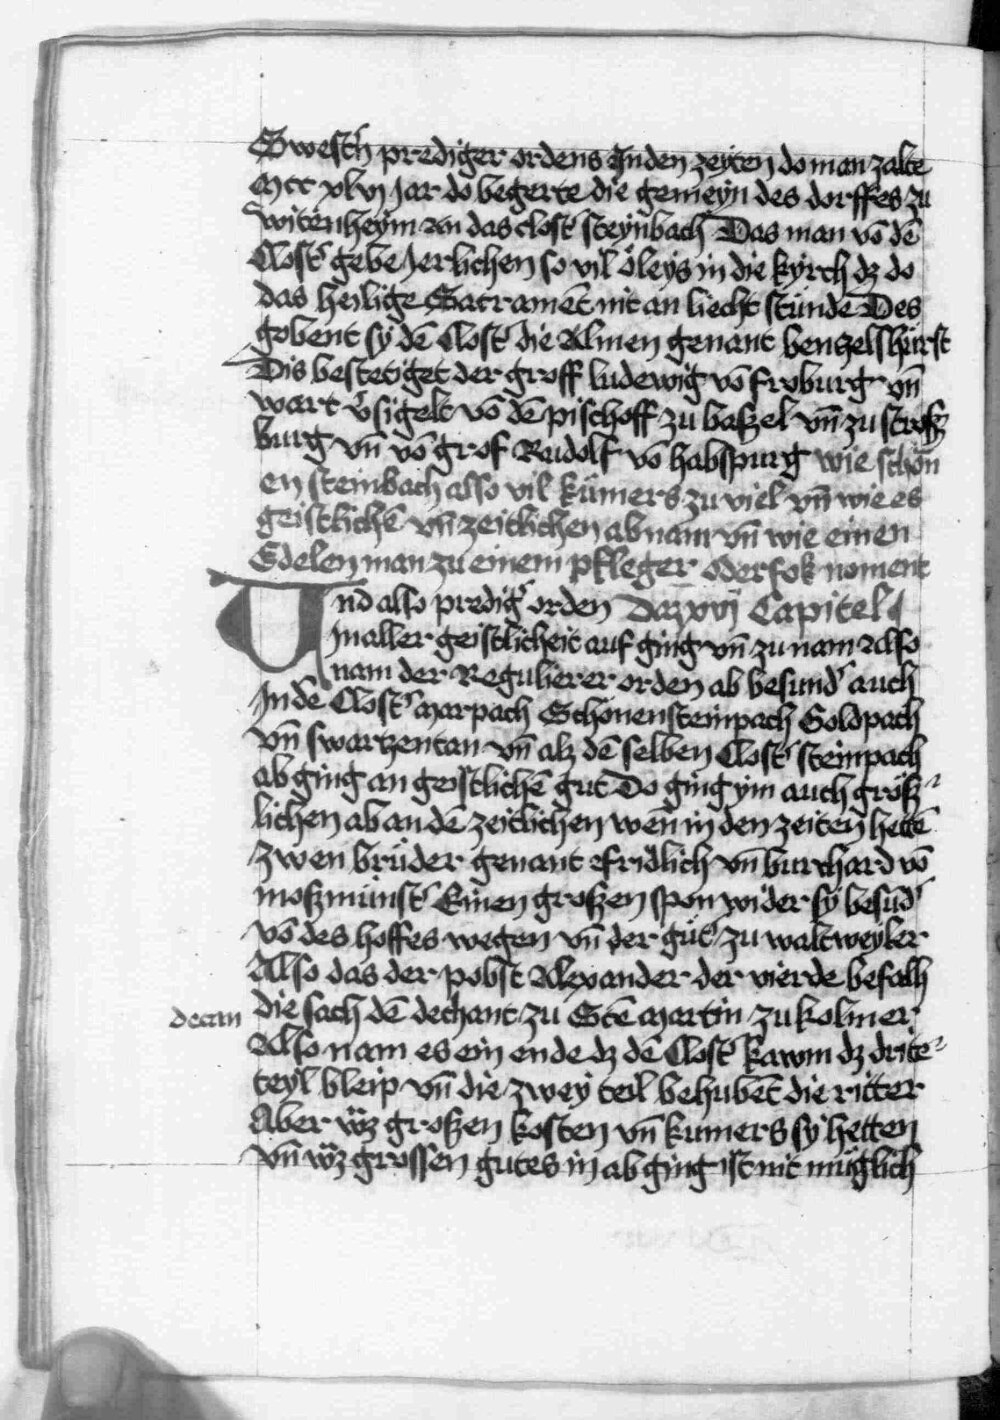 Swest'n prediger ordens Jn den zeyten do man zalte
Mcc xlvj Jar do begerte die gemeyn des dorffes zu
witenheym an das clost' steynbach Das man vō dē
Clost' gebe Jerlichen so vil öleys in die kyrch dz do
das heilige Sacramēt nit an liecht stünde Des
gobent sy dē Clost' die Almen genant bentzelshürst
Dis bestetiget der groff ludewig vō froburg vn̄
wart v'sigelt vō dē pischoff zu baszel vn̄ zu strosz
burg vn̄ vō grof Rudolf vō habspurg wie schön
en steinbach also vil kümers zu viel vn̄ wie es
geistlichē vn̄ zeitlichen abnam vn̄ wie einen
Edelen man zu einem pfleger oder fok noment
Vnd also predig' orden Daz xvj Capitel
Jn aller geistlicheit auf ging vn̄ zu nam Also
nam der Regulierer orden ab besund' auch
Jn dē Clost' Marpach Schönensteinpach Goldpach
vn̄ swartzentan vn̄ alz dē selben Clost' steinpach
ab ging an geistlichē gut Do ging ym auch grösz
lichen ab an dē zeitlichen wen̄ in den zeiten hettē
zwen brüder genant fridlich vn̄ burchard vō
moszmünst' Einen groszen spon wider sy besūd'
vō des hoffes wegen vn̄ der güt' zu waltweyler
Also das der pobst Alexander der vierde befalh
decan die sach dē dechant zu Sctē Martin zu kolmer
Also nam es ein ende dz dē Clost' kawm dz drite
teyl bleip vn̄ die zwey teil behubēt die ritter
Aber wz groszen kosten vn̄ kumers sy hetten
vn̄ wz grossen gutes in ab ging ist nit müglich